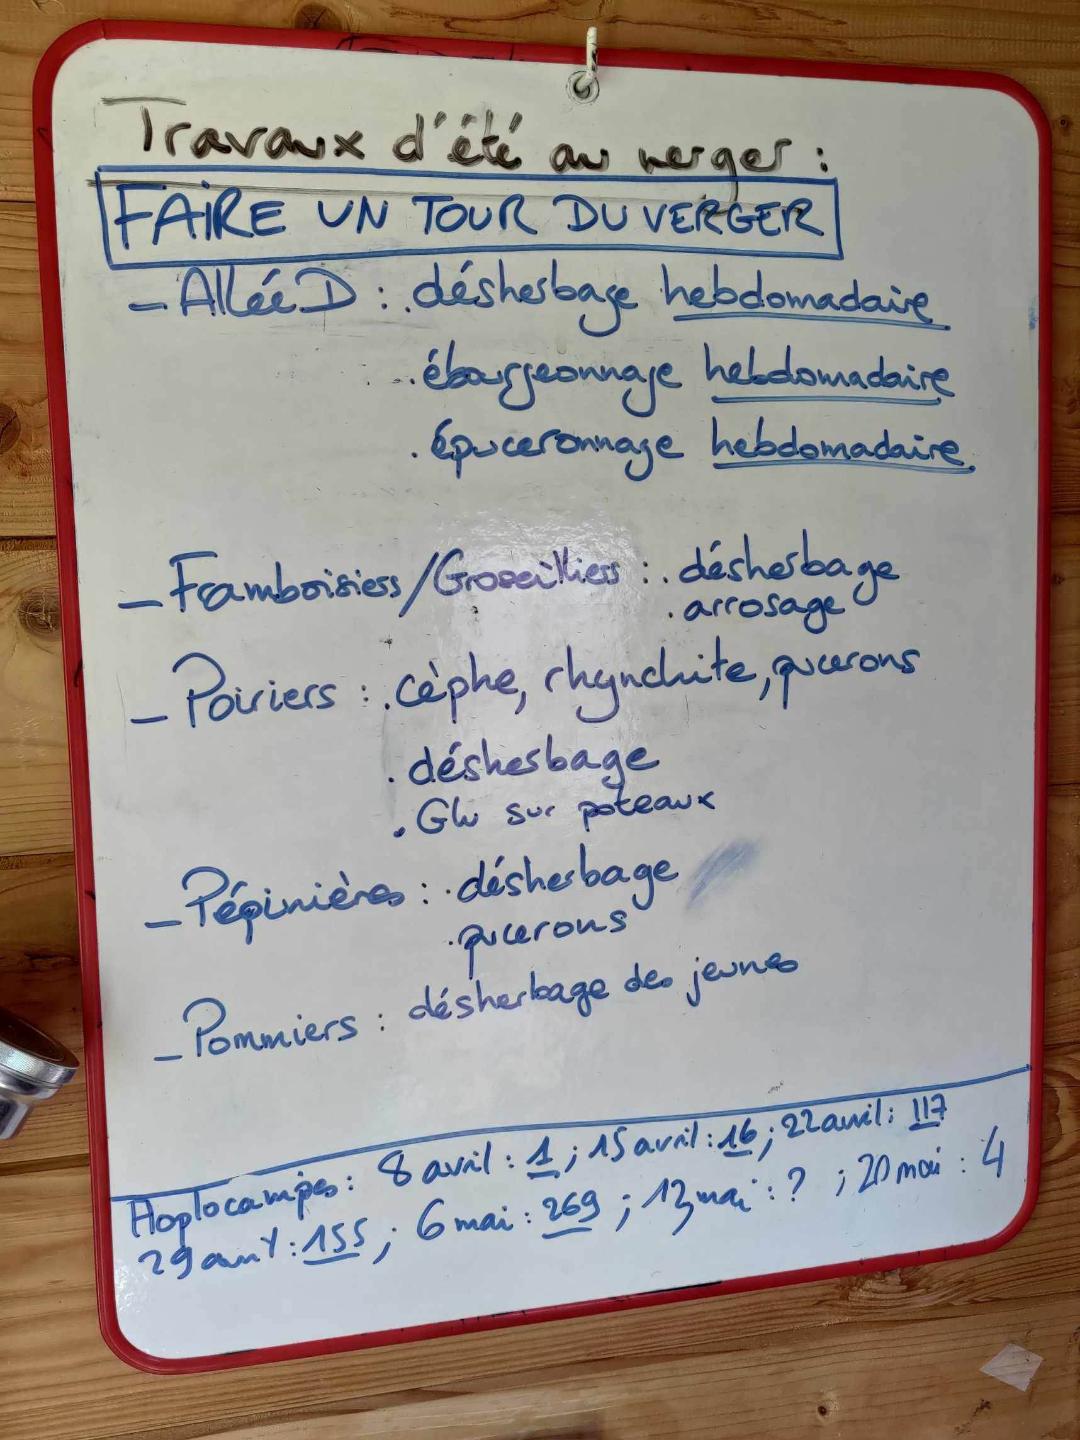 Travaux d'été au verger :
FAIRE UN TOUR DU VERGER
- Allée D : . désherbage hebdomadaire
. ébourgeonnage hebdomadaire
. épuceronnage hebdomadaire
- Framboisiers / Groseilliers : . désherbage
. arrosage
- Poiriers : . cèphe, rhynchite, pucerons
. désherbage
. Glu sur poteaux
- Pépinières : . désherbage
. pucerons
- Pommiers : désherbage des jeunes
Hoplocampes : 8 avril : 1 ; 15 avril : 16 ; 22 avril : 117
29 avril : 155 ; 6 mai : 269 ; 13 mai : ? ; 20 mai : 4